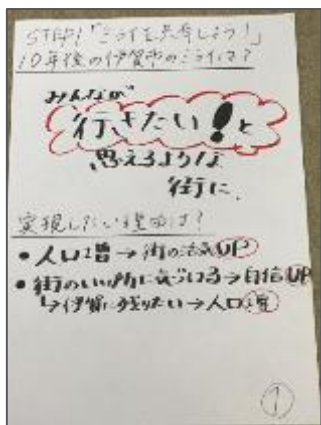 STEP1「ミライを共有しよう!」
10年後の伊賀市のミライは?
みんなが
行きたい!と
思えるような
街に。
実現したい理由は?
• 人口増→街の活気UP
• 街のいい所に気づいる→自信UP
↳伊賀に残りたい→人口増
1